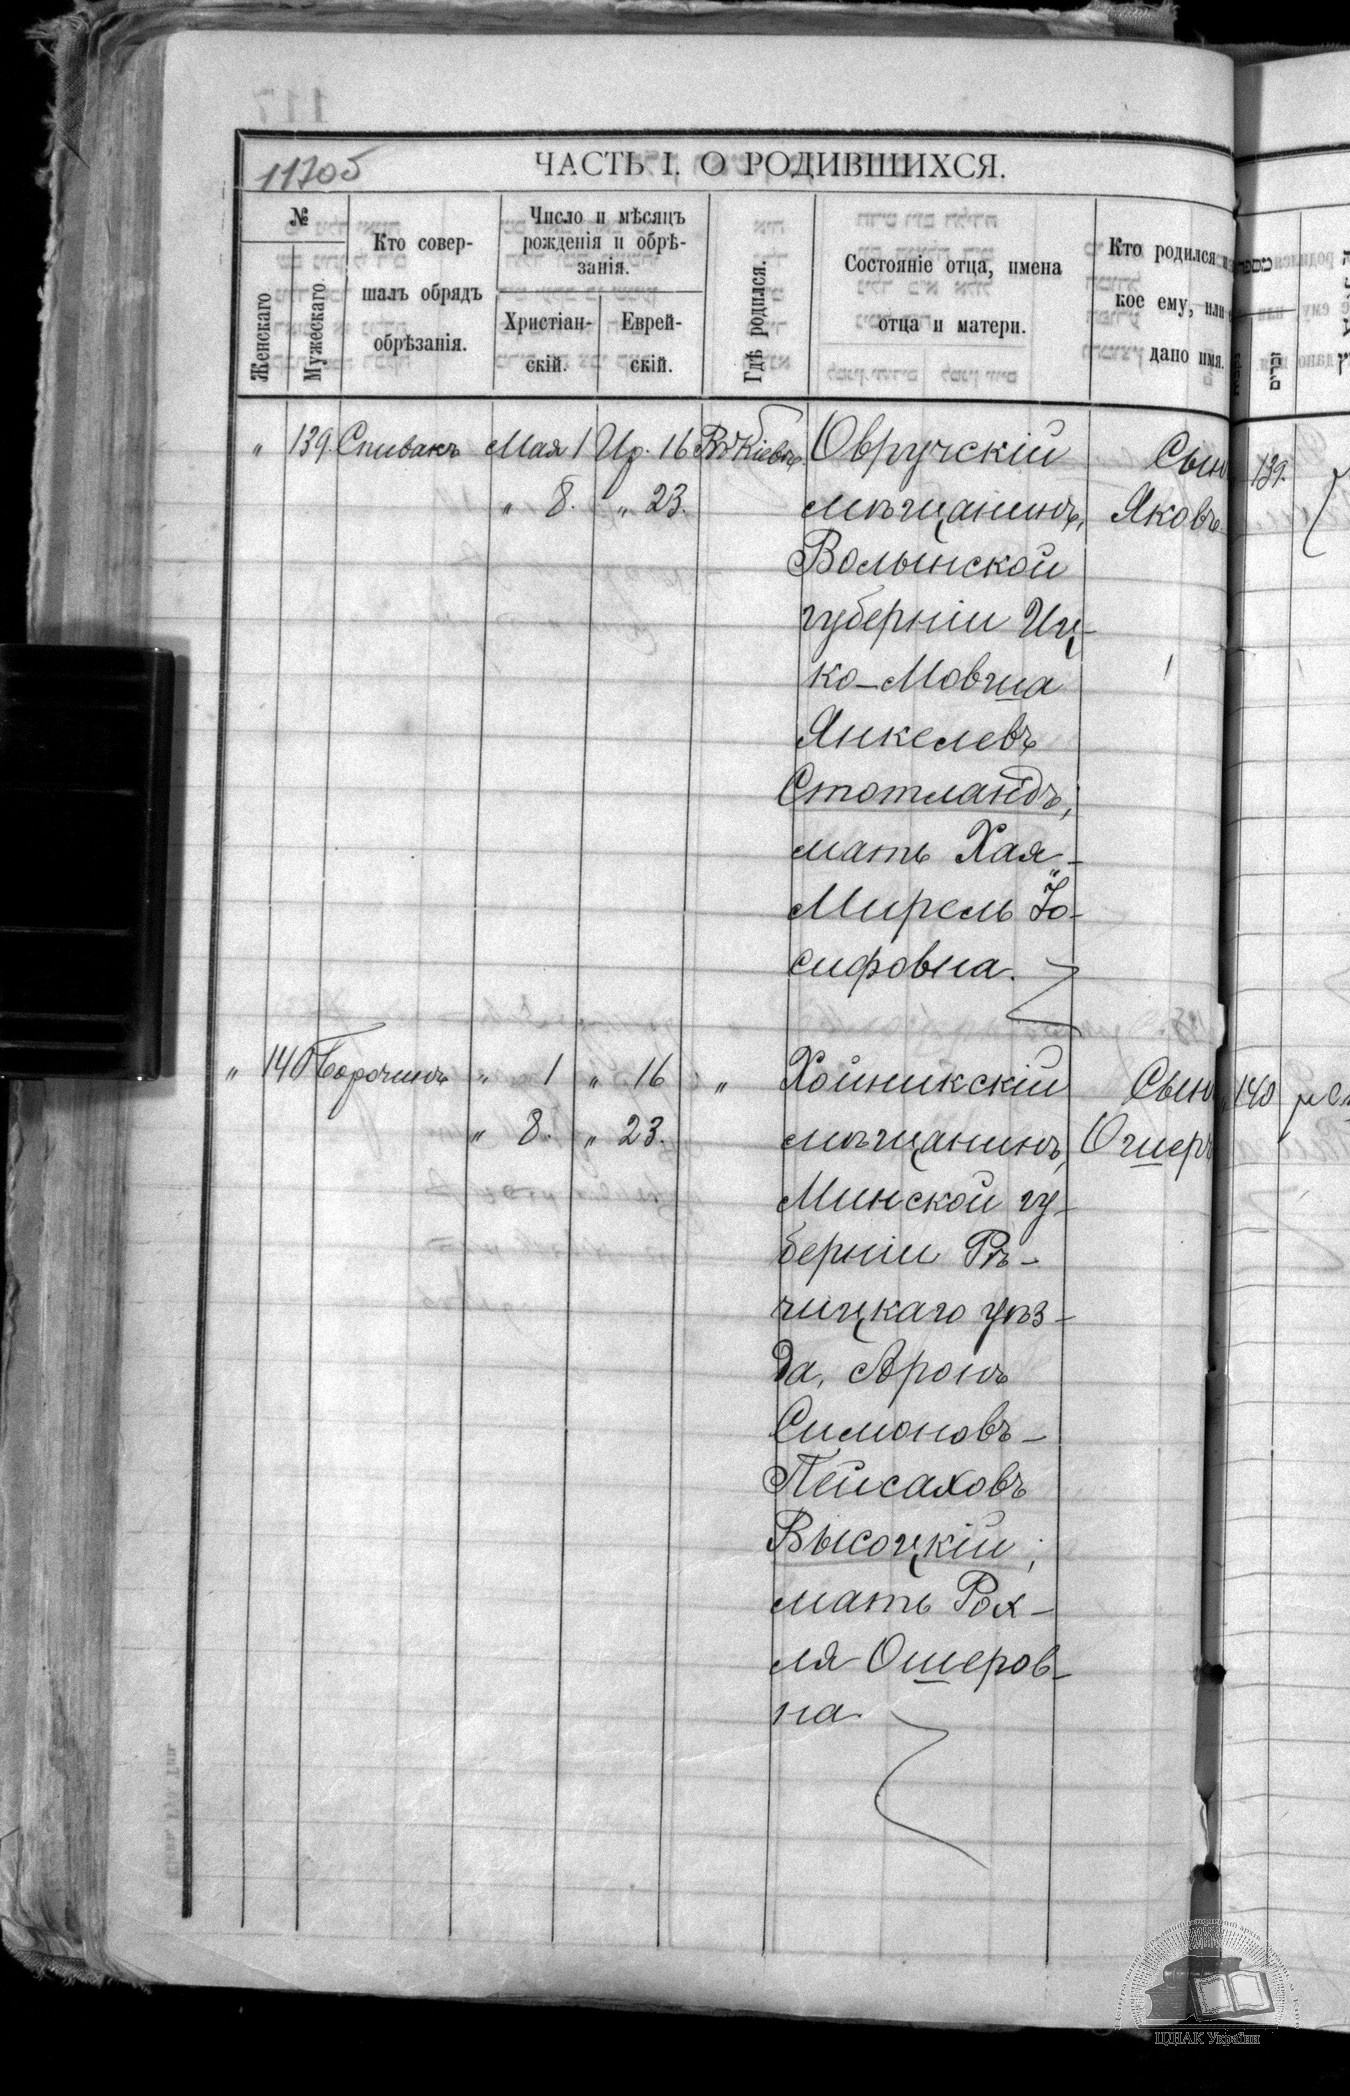 117об
ЧАСТЬ I. О РОДИВШИХСЯ.
№
Женскаго
Мужескаго.
Кто совер-
шалъ обрядъ
обрѣзанія.
Число и мѣсяцъ
рожденія и обрѣ-
занія.
Христіан-
скій.
Еврей-
скій.
Гдѣ родился.
Состояніе отца, имена
отца и матери.
Кто родился и
кое ему, или
дано имя.
" 139. Спивакъ Мая 1 Ир. 16 Въ Кіевѣ Овручскій Сынъ 139.
" 8. " 23. мѣщанинъ, Яковъ
Волынской
губерніи Иц-
ко-Мовша
Янкелевъ
Стотландъ;
мать Хая-
Мирель Іо-
сифовна.
" 140 " 1 " 16 " Хойникскій Сынъ 140
" 8. " 23. мѣщанинъ, Ошеръ
Минской гу-
берніи Рѣ-
чицкаго уѣз-
да, Аронъ
Симоновъ-
Пейсаховъ
Высоцкій;
мать Рох-
ля Ошеров-
на
ЦДІАК України